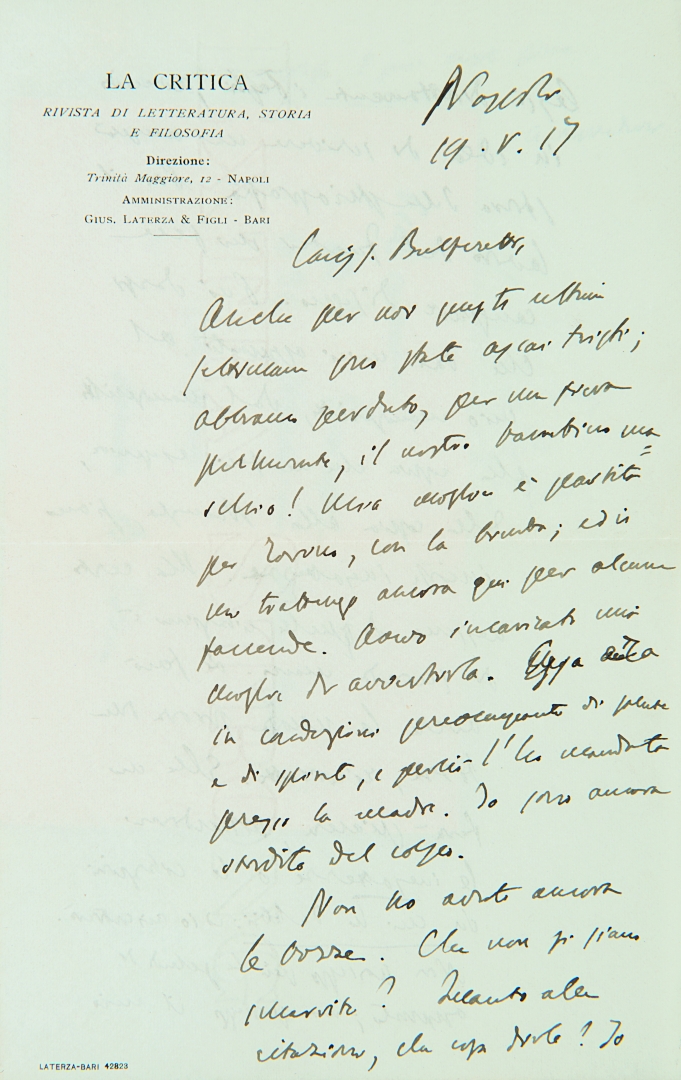 LA CRITICA
RIVISTA DI LETTERATURA, STORIA
E FILOSOFIA
Direzione:
Trinità Maggiore, 12 - NAPOLI
AMMINISTRAZIONE:
GIUS. LATERZA & FIGLI - BARI
Napoli
19. V. 17
Bulferetti,
Anche per noi queste ultime
settimane sono state assai tristi;
abbiamo perduto, per una
il nostro bambino ma=
schio! Mia moglie è partita
per Torino, con la bimba; ed io
mi trattengo ancora qui per alcune
faccende. Avevo incaricato mia
moglie di avvertirla. Essa era
in condizioni preoccupanti di salute
e di spirito, e perciò l'ho mandata
presso la madre. Io sono ancora
stordito del colpo.
Non ho avuto ancora
le bozze. Che non si siano
smarrite? Quanto alla
citazione, che cosa vuole? Io
LATERZA-BARI 42823